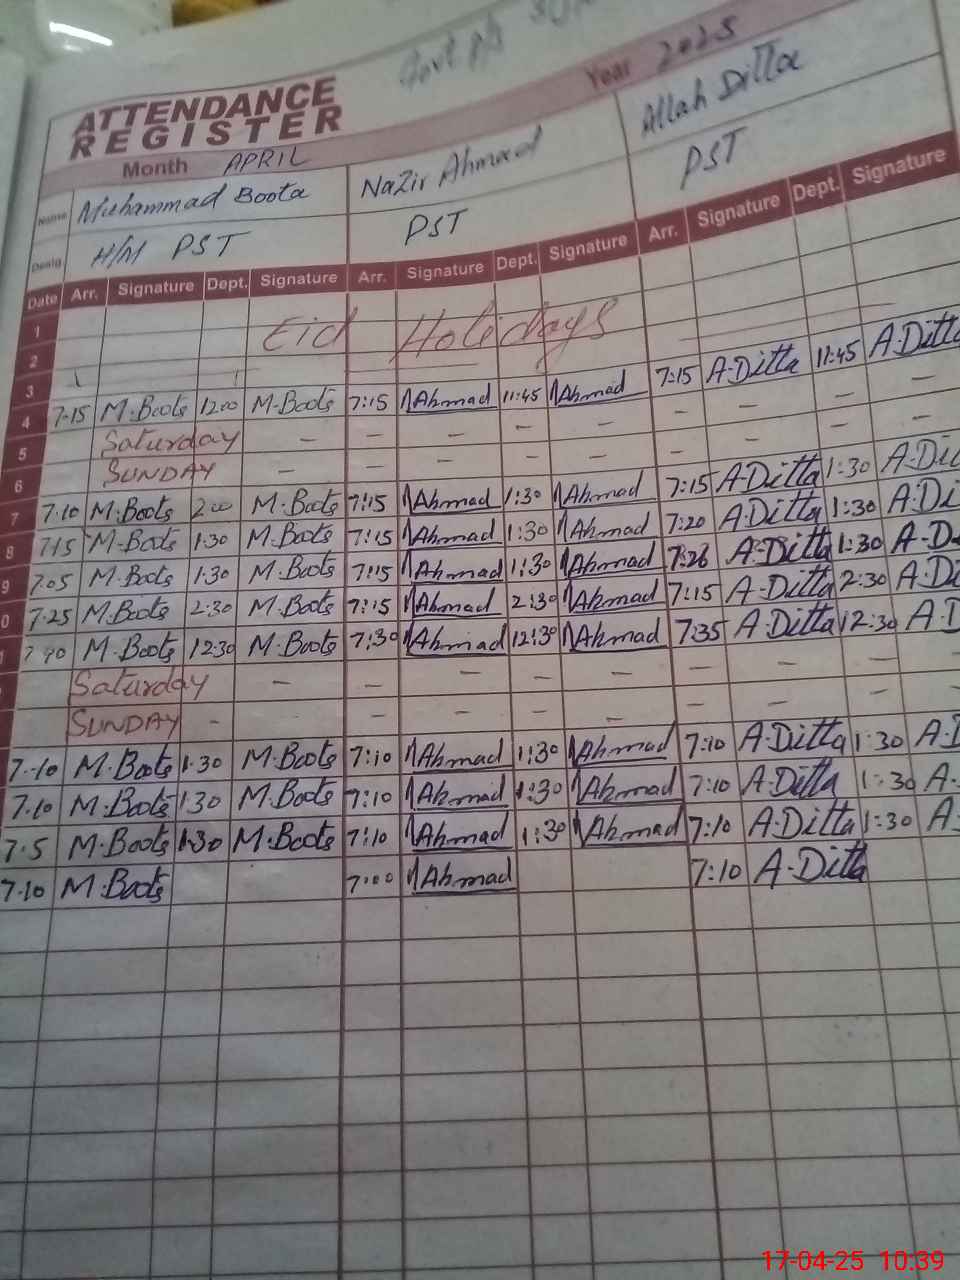 Govt P/S
ATTENDANCE
REGISTER
Year 2025
Month APRIL
Name Muhammad Boota Nazir Ahmad Allah Ditta
Desig H/M PST PST PST
Date Arr. Signature Dept. Signature Arr. Signature Dept. Signature Arr. Signature Dept. Signature
1
2 Eid Holidays
3
4 7-15 M.Boota 12:00 M-Boota 7:15 NAhmad 11:45 NAhmad 7:15 A-Ditta 11:45 A-Ditta
5 Saturday - - - - - - -
6 SUNDAY - - - - - - -
7 7:10 M.Boota 2:00 M-Boota 7:15 NAhmad 1:30 NAhmad 7:15 A-Ditta 1:30 A-Di
8 7:15 M-Boota 1:30 M-Boota 7:15 NAhmad 1:30 NAhmad 7:20 A-Ditta 1:30 A-Di
9 7:05 M.Boota 1:30 M-Boota 7:15 NAhmad 1:30 NAhmad 7:26 A-Ditta 1:30 A-D
0 7.25 M.Boota 2:30 M-Boota 7:15 NAhmad 2:30 NAhmad 7:15 A-Ditta 2:30 A-Di
M-Boota 12:30 M-Boota 7:30 NAhmad 12:30 NAhmad 7:35 A-Ditta 12:30 A-D
Saturday - - - - - - - -
SUNDAY - - - - - - - -
7.-10 M.Boota 1.30 M.Boota 7:10 NAhmad 1:30 NAhmad 7:10 A-Ditta 1:30 A-D
7.10 M.Boota 1:30 M.Boota 7:10 NAhmad 1:30 NAhmad 7:10 A-Ditta 1:30 A-
7.5 M.Boota 1:30 M-Boota 7:10 NAhmad 1:30 NAhmad 7:10 A-Ditta 1:30 A-
7.10 M.Boota 7:00 NAhmad 7:10 A-Ditta
17-04-25 10:39